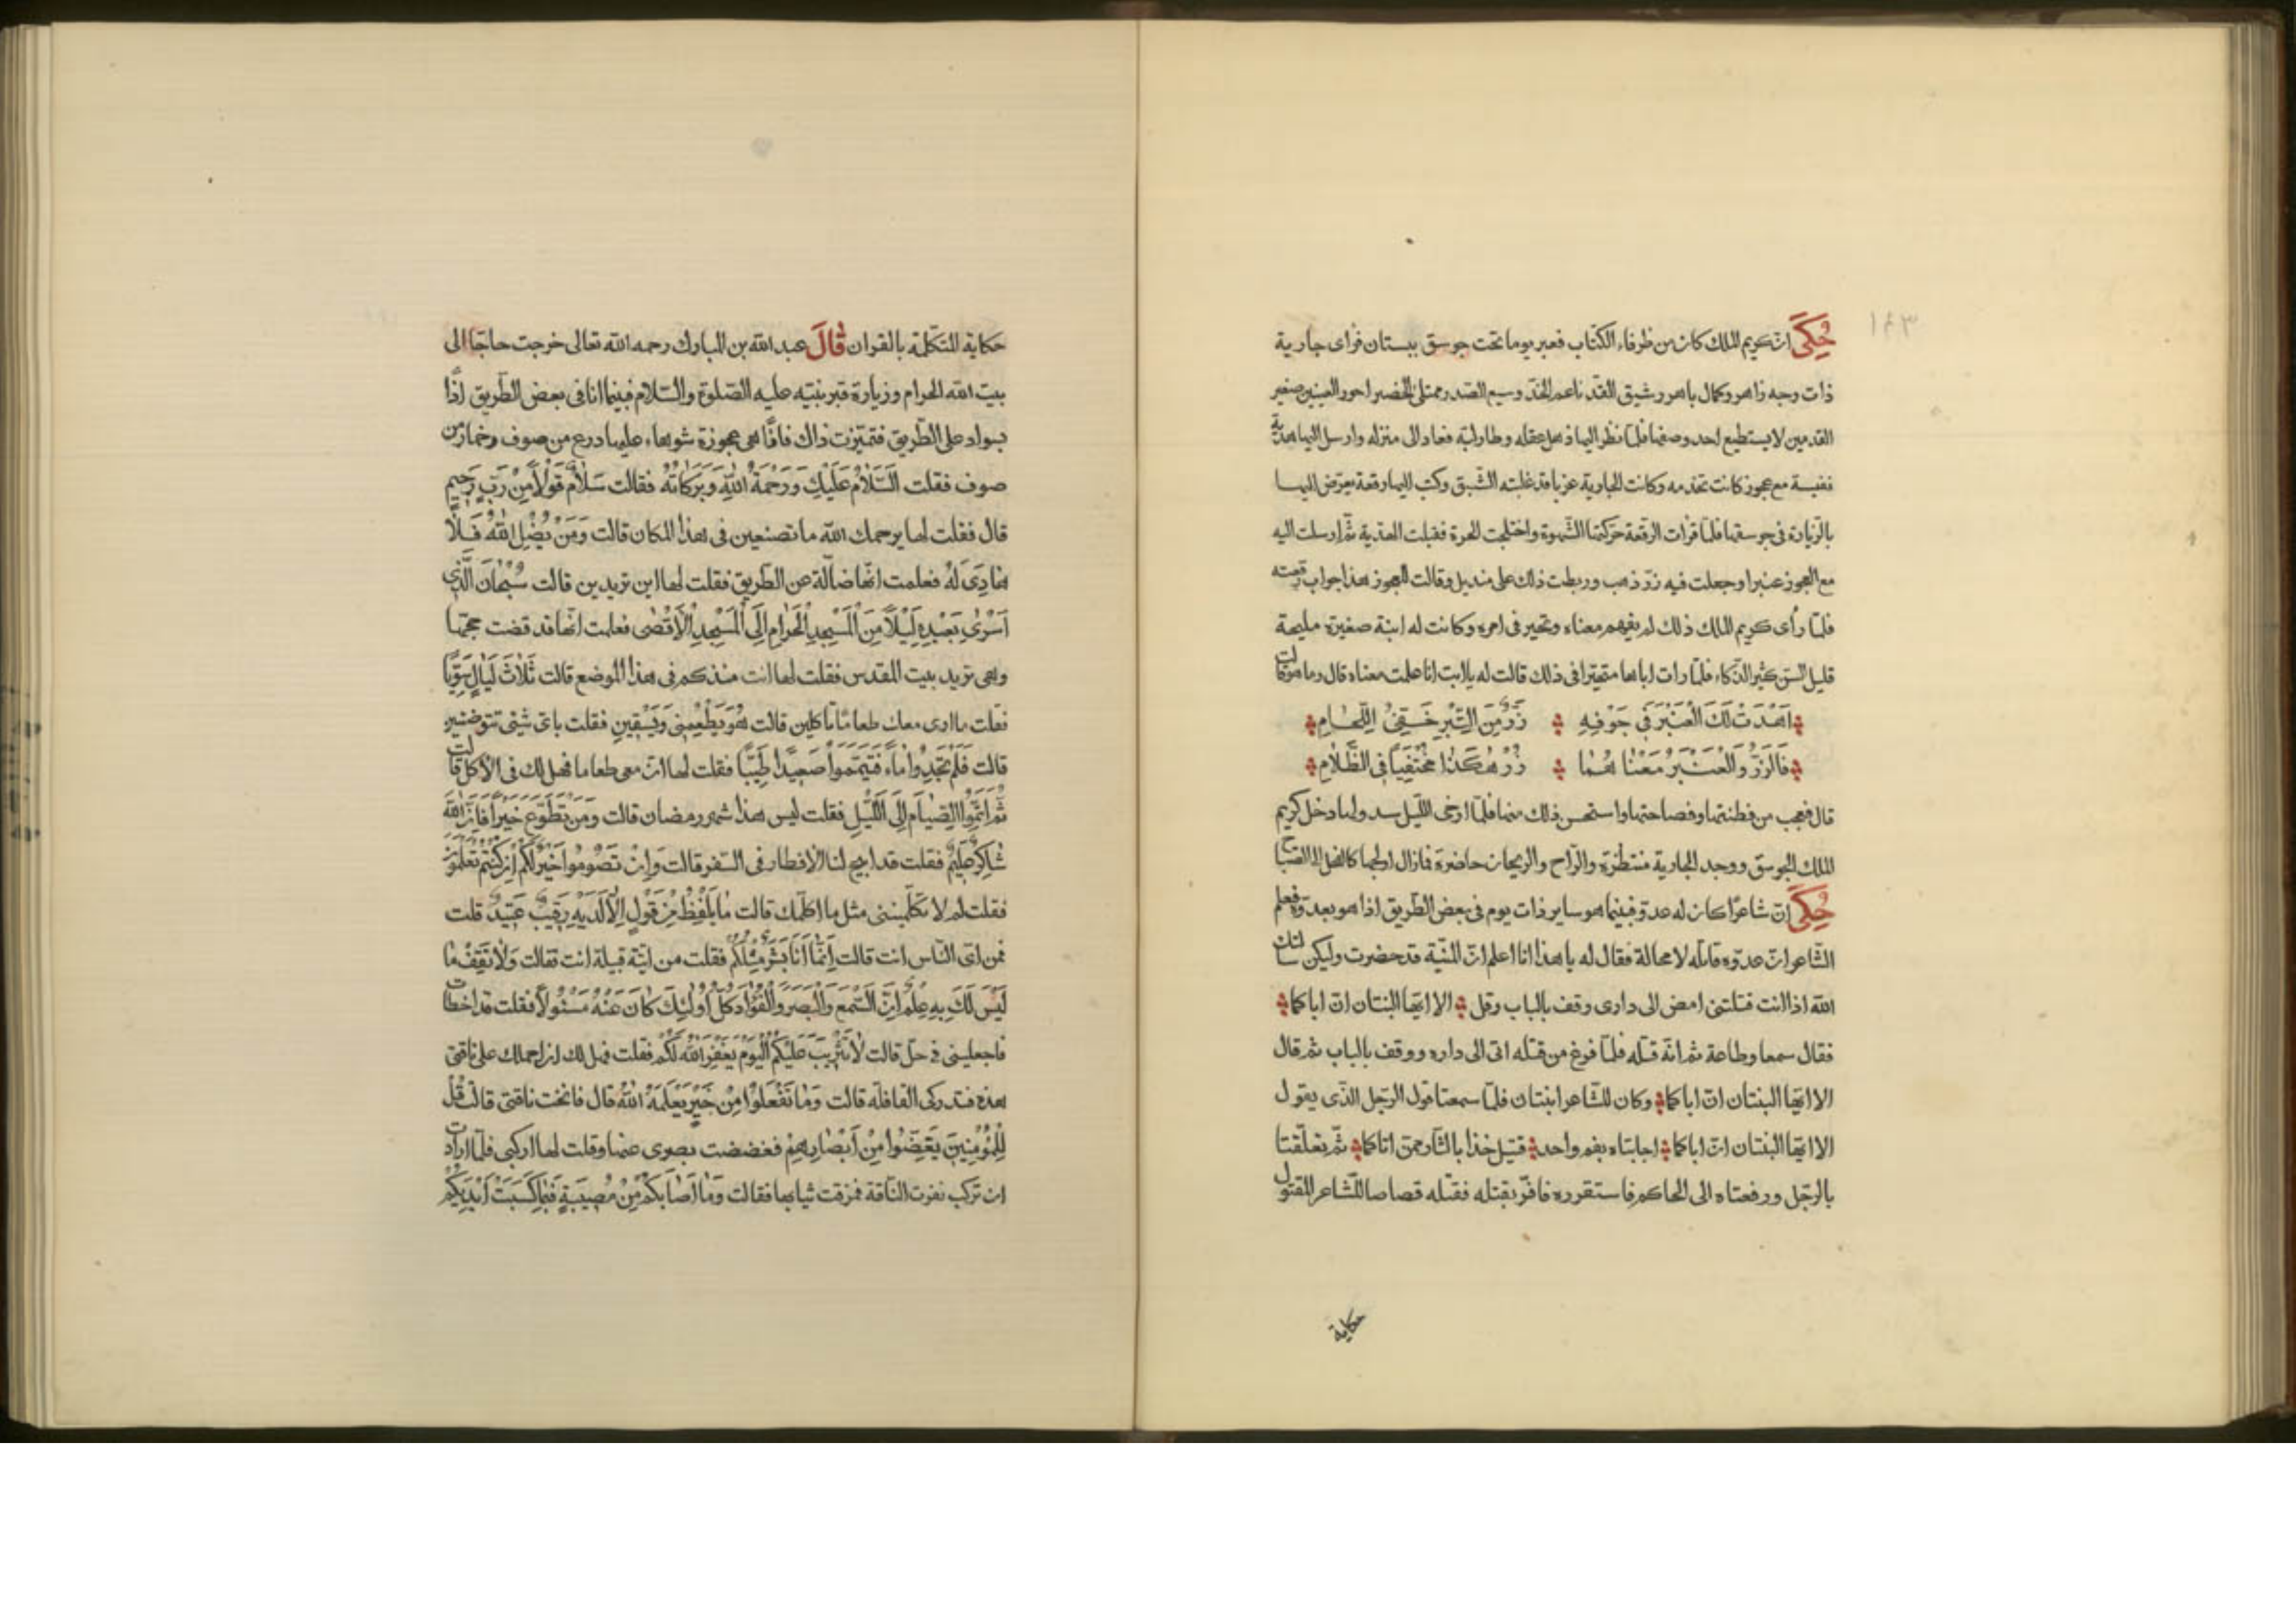 ١٤٣
حُكَى ان كريم الملك كان من ظرفاء الكتّاب فعبر يوما تحت جوسق ببستان فراى جارية
ذات وجه زاهر وكمال باهر رشيق القدّ ناعم الخدّ وسيم الصدر ممتلى الخضر احور العينين صغير
القدمين لا يستطيع احد وصفها فلمّا نظر اليها ذهل عقله وطار لبّه فعاد الى منزله وارسل اليها هديّة
نفيسة مع عجوز كانت تخدمه وكانت الجارية عزبا قد غلبته الشّبق وكتب اليها رقعة يعرّض اليها
بالزّيارة فى جوسقها فلمّا قرات الرقعة حركتها الشّهوة واختلجت الحرة فقبلت الهديّة ثمّ ارسلت اليه
مع العجوز عنبرا وجعلت فيه زرّ ذهب وربطت ذلك على منديل وقالت للعجوز هذا جواب رقعته
فلمّا رأى كريم الملك ذلك لم يفهم معناه وتحير فى امره وكانت له ابنة صغيرة مليحة
قليل السنّ كثير الذّكاء فلمّا رات اباها متحيّرا فى ذلك قالت له يا ابت انا علمت معناه قال وما هو قالت
اَهْدَتْ لَكَ الْعَنْبَرَ فِى جَوْفِهِ زَرٌّ مِنَ التِّبْرِ خَفِىُّ اللِّحَامِ
فَالزّرُّ وَالْعَنْبَرُ مَعْنَاهُمَا زُرْ هٰكَذَا مُخْتَفِيًا فِى الظَّلَامِ
قال فعجب من فطنتها وفصاحتها واستحسن ذلك منها فلمّا ارخى اللّيل سدولها دخل كريم
الملك الجوسق ووجد الجارية منتظرة والرّاح والريحان حاضرة فمازال الى الصّباح
حُكِىَ انّ شاعرًا كان له عدوّ فبينما هو ساير ذات يوم فى بعض الطريق اذا هو بعدوّه فعلم
الشّاعر انّ عدوّه قاتله لا محالة فقال له يا هذا انا اعلم انّ المنيّة قد حضرت ولكن سالتك
الله اذا انت قتلتنى امض الى دارى وقف بالباب وقل الا ايّها البنتان انّ اباكما
فقال سمعا وطاعة ثم انّه قتله فلمّا فرغ من قتله اتى الى داره ووقف بالباب ثم قال
الا ايّها البنتان انّ اباكما وكان للشّاعر ابنتان فلمّا سمعتا قول الرّجل الذّى يقول
الا ايّها البنتان انّ اباكما اجابتاه بفم واحد قتيل خذا بالثّار ممّن اتاكما ثمّ تعلّقتا
بالرجّل ورفعتاه الى الحاكم فاستقرره فاقرّ بقتله فقتله قصاصا للشّاعر المقتول
حكاية
حكاية المتكلّمة بالقران قَالَ عبد الله بن المبارك رحمه الله تعالى خرجت حاجّا الى
بيت الله الحرام وزيارة قبر نبيّه عليه الصّلوة والسّلام فبينما انا فى بعض الطّريق اذًا
بسواد على الطّريق فتميّزت ذاك فاذًا هى عجوزة شوهاء عليها درع من صوف وخمار من
صوف فقلت اَلسَّلَامُ عَلَيْكِ وَرَحْمَةُ اللهِ وَبَرَكَاتُهُ فقالت سَلَامٌ قَوْلًا مِنْ رَبٍّ رَحِيمٍ
قال فقلت لها يرحمك الله ما تصنعين فى هذا المكان قالت وَمَنْ يُضْلِلِ اللهُ فَلَا
هَادِىَ لَهُ فعلمت انّها ضالّة عن الطّريق فقلت لها اين تريدين قالت سُبْحَانَ الَّذِى
اَسْرٰى بِعَبْدِهِ لَيْلًا مِنَ الْمَسْجِدِ الْحَرَامِ اِلَى الْمَسْجِدِ الْاَقْصٰى فعلمت انّها قد قضت حجّها
وهى تريد بيت المقدس فقلت لها انت منذ كم فى هذا الموضع قالت ثَلٰثَ لَيَالٍ سَوِيًّا
فقلت ما ارى معك طعامًا تاكلين قالت هُوَ يُطْعِمُنِى وَيَسْقِينِ فقلت باىّ شئى تتوضئين
قالت فَلَمْ تَجِدُوا مَاءً فَتَيَمَّمُوا صَعِيدًا طَيِّبًا فقلت لها انّ معى طعاما فهل لك فى الأكل قالت
ثُمَّ اَتِمُّوا الصِّيَامَ اِلَى اللَّيْلِ فقلت ليس هذا شهر رمضان قالت وَمَنْ تَطَوَّعَ خَيْرًا فَاِنَّ اللهَ
شَاكِرٌ عَلِيمٌ فقلت قد ابيح لنا الافطار فى السّفر قالت وَاِنْ تَصُومُوا خَيْرٌ لَكُمْ اِنْ كُنْتُمْ تَعْلَمُونَ
فقلت لم لا تكلّمينى مثل ما اكلّمك قالت مَا يَلْفِظُ مِنْ قَوْلٍ اِلَّا لَدَيْهِ رَقِيبٌ عَتِيدٌ قلت
فمن اىّ النّاس انت قالت اِنَّمَا اَنَا بَشَرٌ مِثْلُكُمْ فقلت من ايّة قبيلة انت فقالت وَلَا تَقِفُ مَا
لَيْسَ لَكَ بِهِ عِلْمٌ اِنَّ السَّمْعَ وَالْبَصَرَ وَالْفُؤَادَ كُلُّ اُولٰئِكَ كَانَ عَنْهُ مَسْئُولًا فقلت قد اخطات
فاجعلينى فى حلّ قالت لَا تَثْرِيبَ عَلَيْكُمُ الْيَوْمَ يَغْفِرُ اللهُ لَكُمْ فقلت فهل لك ان احملك على ناقتى
هذه فتدركى القافلة قالت وَمَا تَفْعَلُوا مِنْ خَيْرٍ يَعْلَمْهُ اللهُ قال فانخت ناقتى قالت قُلْ
لِلْمُؤْمِنِينَ يَغُضُّوا مِنْ اَبْصَارِهِمْ فغضضت بصرى عنها وقلت لها اركبى فلمّا ارادت
ان تركب نفرت النّاقة فمزقت ثيابها فقالت وَمَا اَصَابَكُمْ مِنْ مُصِيبَةٍ فَبِمَا كَسَبَتْ اَيْدِيكُمْ